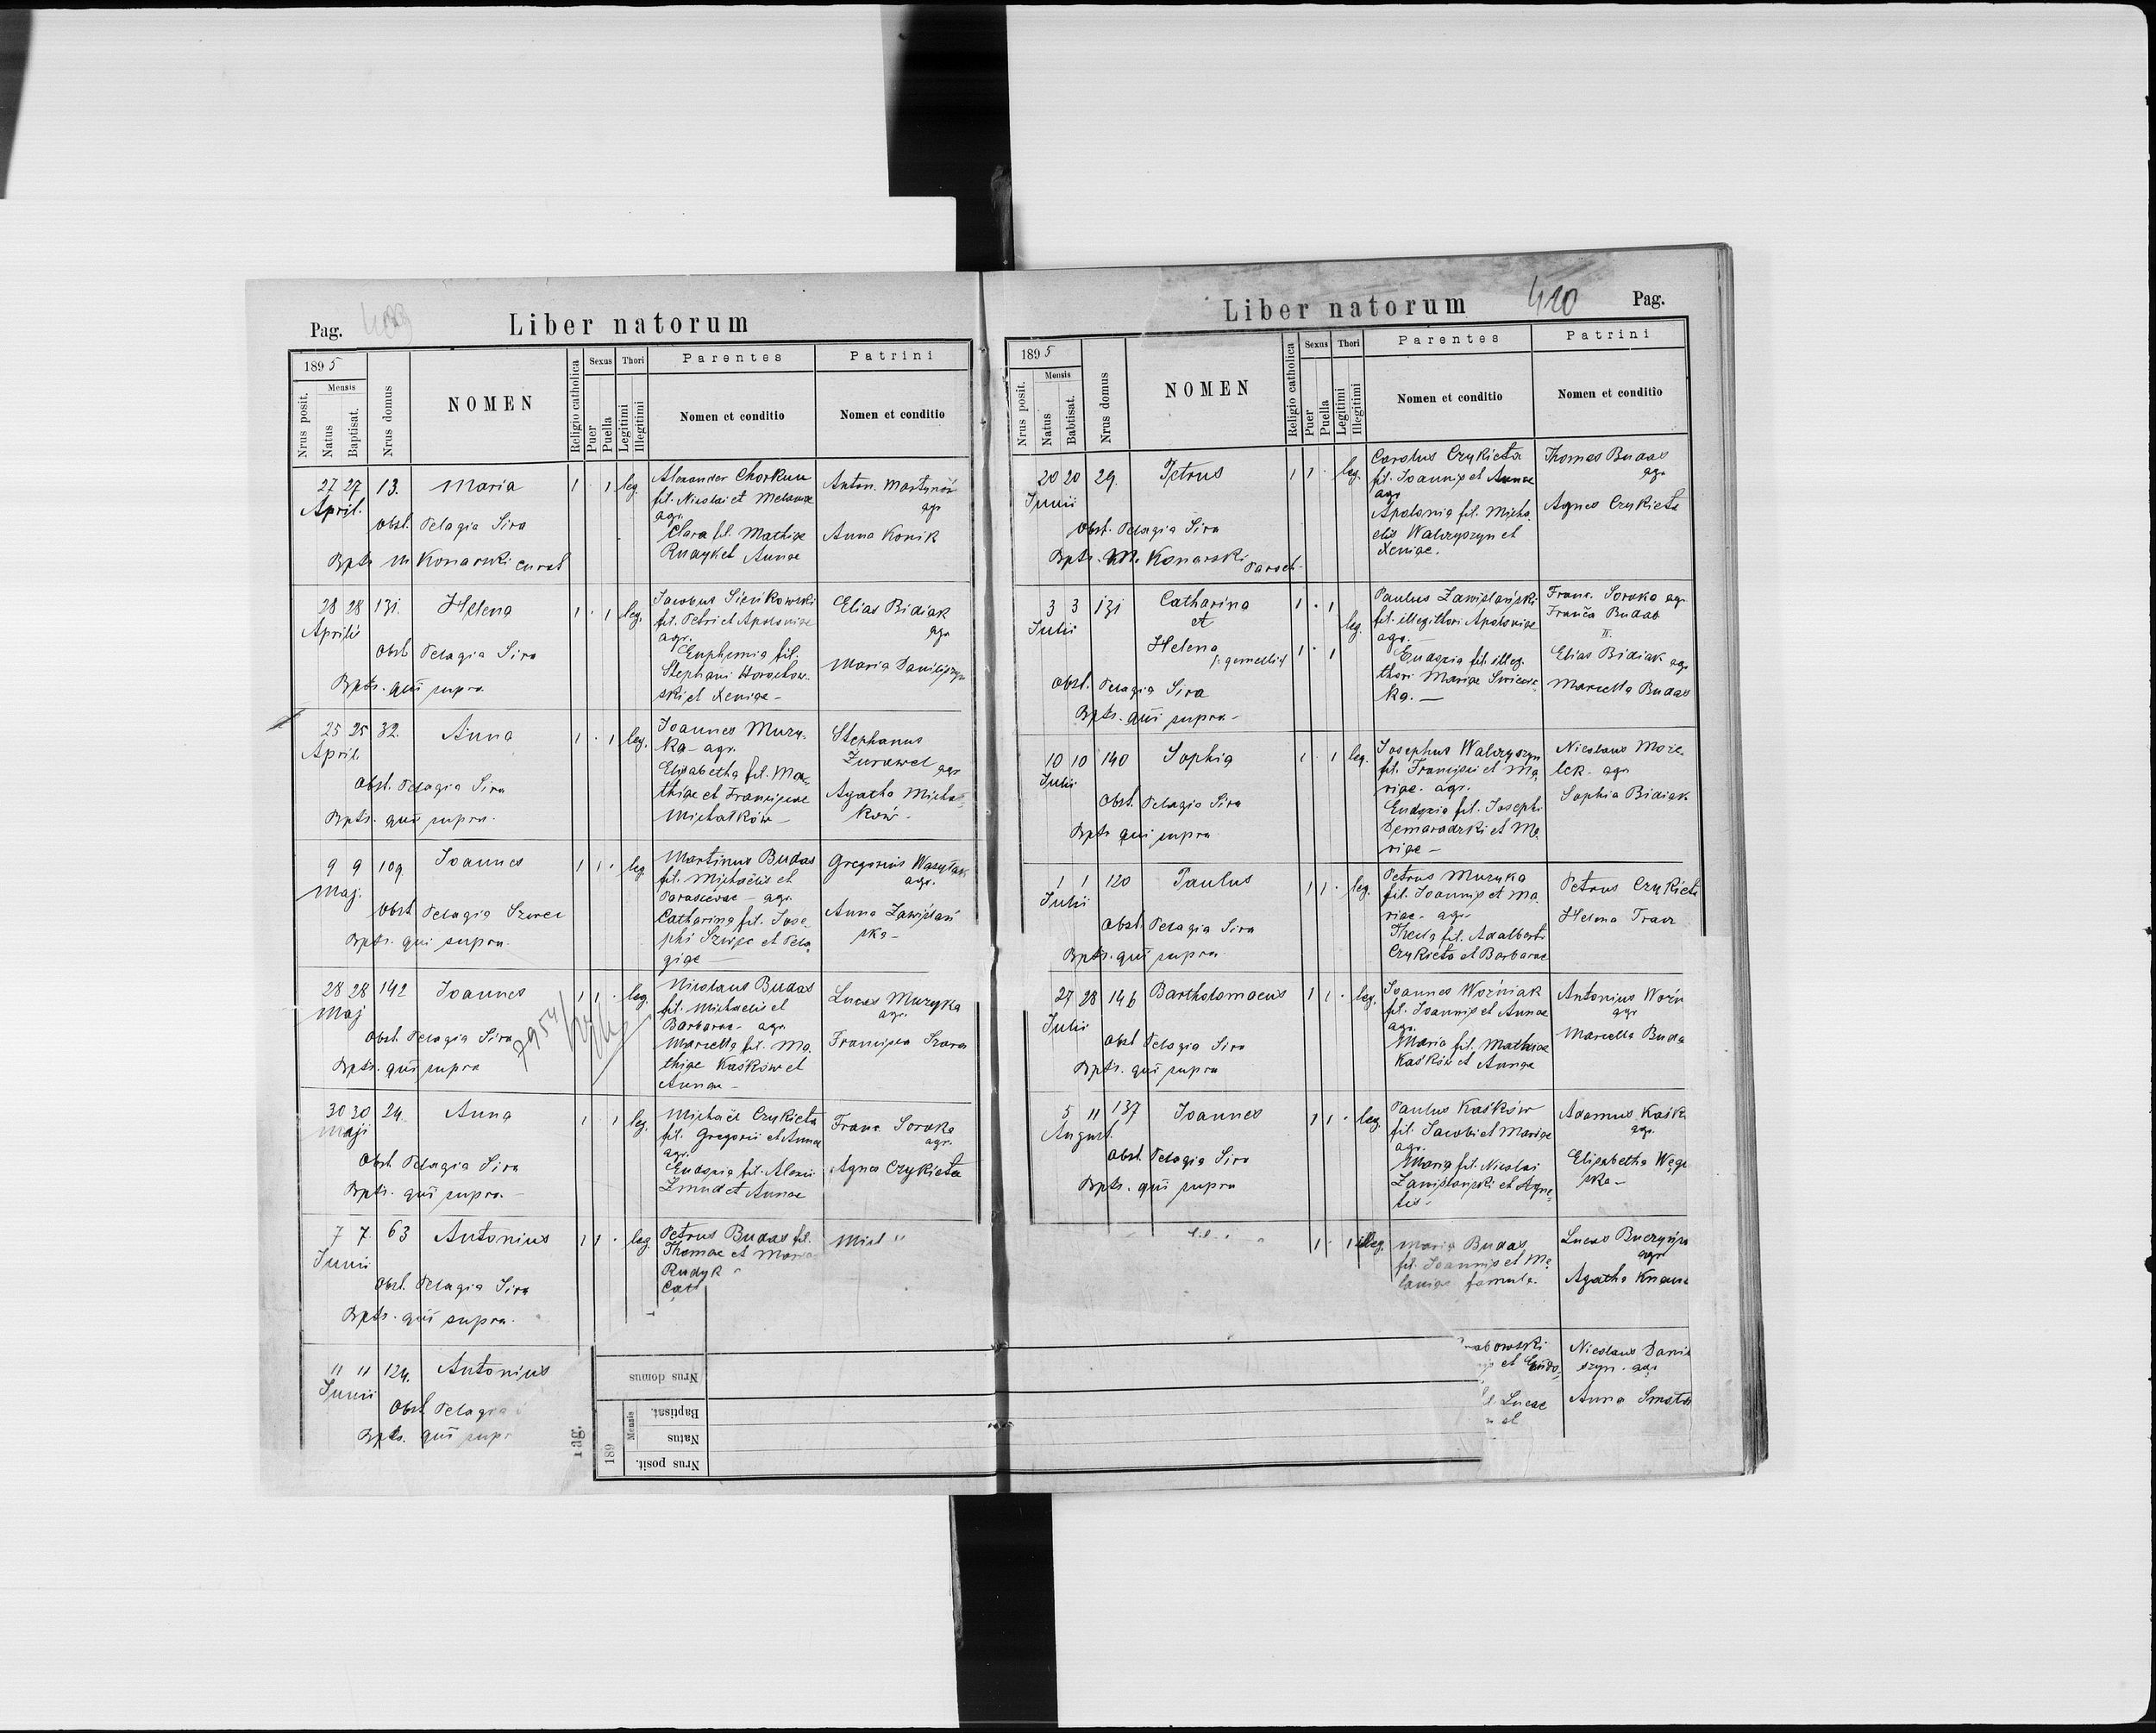 Pag. 409
Liber natorum
1895
Mensis
Nrus posit.
Natus
Baptisat.
Nrus domus
NOMEN
Religio catholica
Sexus
Puer
Puella
Thori
Legitimi
Illegitimi
Parentes
Nomen et conditio
Patrini
Nomen et conditio
27 27 13. Maria 1 · 1 leg.
April.
Obst. Pelagia Sira
Bpts M Konarski curat
Alexander Chorkun
fil. Nicolai et Melaniae
agr.
Clara fil. Mathiae
Rudyk et Annae
Anton. Martynów
agr
Anna Konik
28 28 131. Helena 1 · 1 leg.
Aprilis
Obst Pelagia Sira
Bpts. qui supra
Jacobus Sieńkowski
fil. Petri et Apoloniae
agr.
Euphemia fil.
Stephani Horochow-
ski et Xeniae –
Elias Bidiak
agr
Maria Daniliszyn
25 25 32. Anna 1 · 1 leg.
April.
Obst. Pelagia Sira
Bpts. qui supra.
Joannes Muzy-
ka – agr.
Elisabetha fil. Ma-
thiae et Franciscae
Michałków –
Stephanus
Żurawel agr
Agatha Michał-
ków –
9 9 109 Joannes 1 1 · leg
Maj.
Obst Pelagia Szwec
Bpts. qui supra.
Martinus Budas
fil. Michaëlis et
Parascevae – agr.
Catharina fil. Jose-
phi Szwec et Pela-
giae –
Gregorius Wasylak
agr.
Anna Zawiślań
ska –
28 28 142 Joannes 1 1 · leg.
Maj
Obst Pelagia Sira
Bpts. qui supra
7954
Nicolaus Budas
fil. Michaelis et
Barbarae – agr.
Marcella fil. Ma-
thiae Kaśków et
Annae –
Lucas Muzyka
agr.
Francisca
30 30 24. Anna 1 · 1 leg.
Maji
Obst Pelagia Sira
Bpts. qui supra. –
Michaël Czykieta
fil. Gregorii et Annae
agr.
Eudoxia fil. Alexii
Żmud et Annae
Franc. Soroka
agr.
Agnes Czykieta
7 7 63 Antonius 1 1 · leg
Junii
Obst. Pelagia Sira
Bpts. qui supra.
Petrus Budas fil.
Thomae et Maria
Rudyk
Cat
Mich
11 11 124. Antonius
Junii
Obst Pelagia
Bpts. qui supr
Pag.
189
Mensis
Nrus domus
Baptisat.
Natus
Nrus posit.
Liber natorum
410 Pag.
1895
Mensis
Nrus posit.
Natus
Babtisat.
Nrus domus
NOMEN
Religio catholica
Sexus
Puer
Puella
Thori
Legitimi
Illegitimi
Parentes
Nomen et conditio
Patrini
Nomen et conditio
20 20 29. Petrus 1 1 · leg.
Junii
Obst. Pelagia Sira
Bpts. M. Konarski Paroch
Carolus Czykieta
fil. Joannis et Annae
agr
Apolonia fil. Micha-
elis Walczyszyn et
Xeniae.
Thomas Budas
agr
Agnes Czykieta
3 3 131 Catharina 1 · 1
Julii
et
leg.
Helena 1 · 1
/: gemellae
Obst. Pelagia Sira
Bpts. qui supra –
Paulus Zawislański
fil. illegi thori Apoloniae
agr. –
Eudoxia fil. illeg.
thori Mariae
ka. –
Franc. Soroka agr
Franca Budas
II.
Elias Bidiak agr
Marcella Budas
10 10 140 Sophia 1 · 1 leg.
Julii
Obst. Pelagia Sira
Bpts qui supra
Josephus Walczyszyn
fil. Francisci et Ma-
riae. agr.
Eudoxia fil. Josephi
Demaradzki et Ma-
riae –
Nicolaus Moze-
lek. agr
Sophia Bidiak
1 1 120 Paulus 1 1 · leg.
Julii
Obst. Pelagia Sira
Bpts. qui supra
Petrus Muzyka
fil. Joannis et Ma-
riae. agr
Thecla fil. Adalberti
Czykieta et Barbarae
Petrus Czykieta
Helena Tracz
27 28 146 Bartholomaeus 1 1 · leg.
Julii
Obst Pelagia Sira
Bpts. qui supra
Joannes Woźniak
fil. Joannis et Annae
agr.
Maria fil. Mathiae
Kaśków et Annae
Antonius Woźn
agr
Marcella Buda
5 11 137 Joannes 1 1 · leg
August.
Obst. Pelagia Sira
Bpts. qui supra
Paulus Kaśków
fil. Jacobi et Mariae
agr.
Maria fil. Nicolai
Zawislański et Agne-
tis –
Adamus Kaśk
agr.
Elisabetha
ska –
1 · 1 illeg.
Maria Budas
fil. Joannis et Me-
laniae famula.
Lucas
agr
Agatha
abowski
et Eudo-
Lucae
et
Nicolaus Dani
szyn. agr
Anna